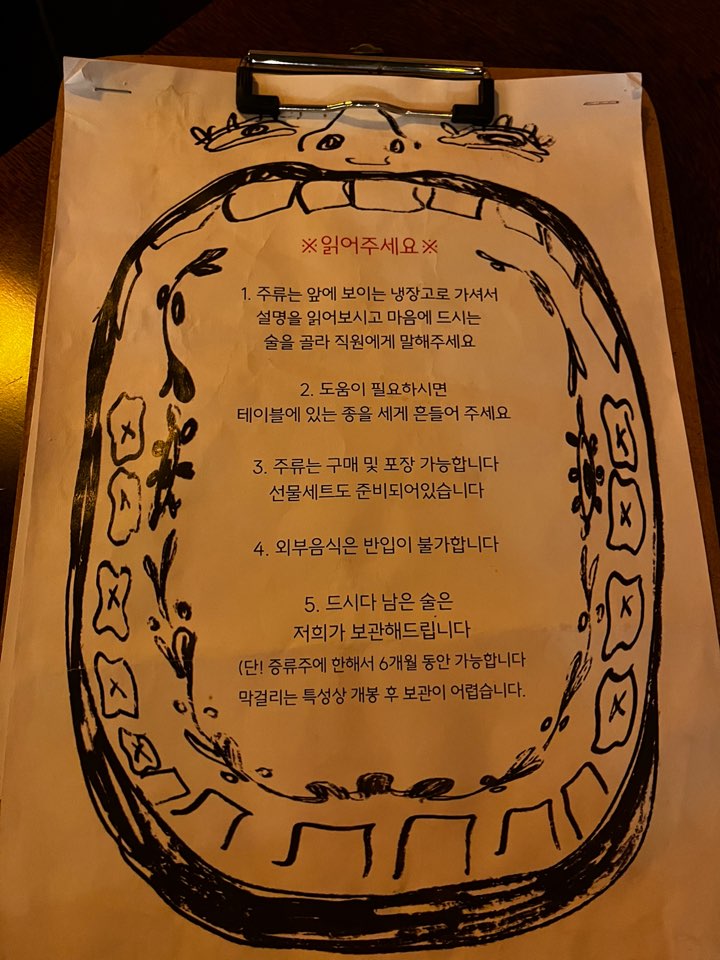 ※읽어주세요※
1. 주류는 앞에 보이는 냉장고로 가셔서
설명을 읽어보시고 마음에 드시는
술을 골라 직원에게 말해주세요
2. 도움이 필요하시면
테이블에 있는 종을 세게 흔들어 주세요
3. 주류는 구매 및 포장 가능합니다
선물세트도 준비되어있습니다
4. 외부음식은 반입이 불가합니다
5. 드시다 남은 술은
저희가 보관해드립니다
(단! 증류주에 한해서 6개월 동안 가능합니다
막걸리는 특성상 개봉 후 보관이 어렵습니다.